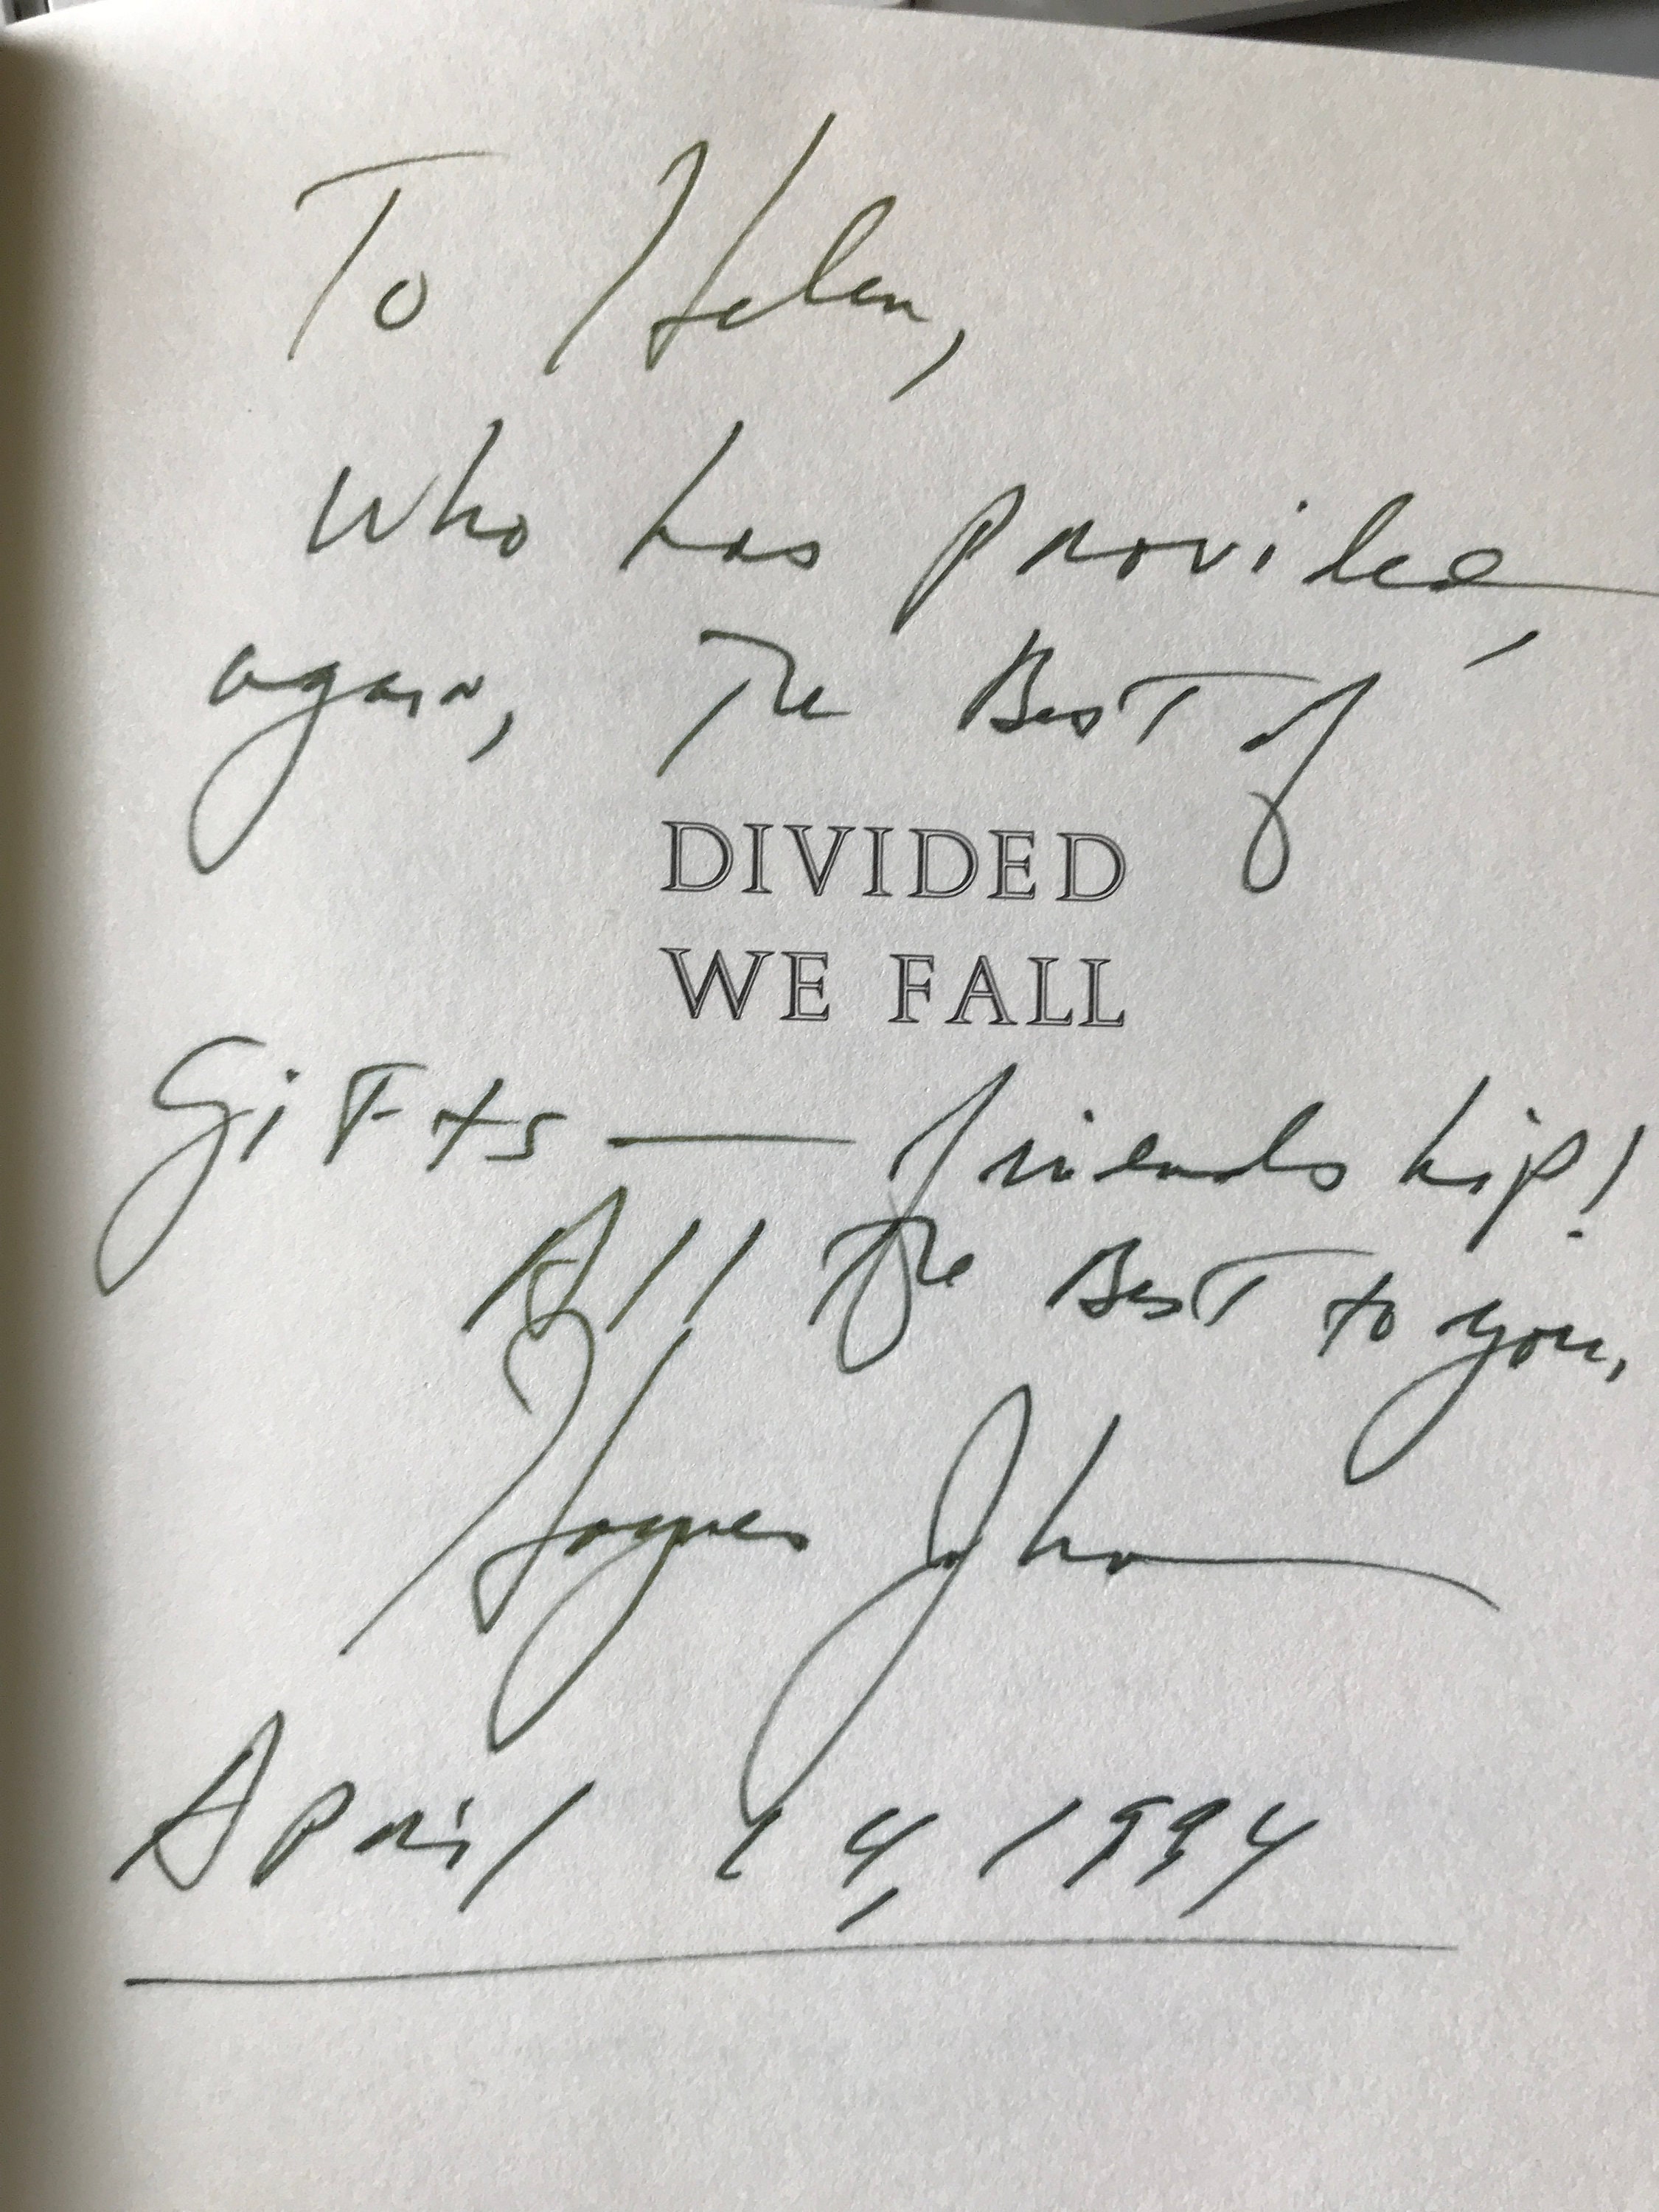 To Helen,
Who has provided,
again, The Best of
DIVIDED
WE FALL
Gifts — friendship!
All The Best to you,
Haynes Johnson
April 14, 1994